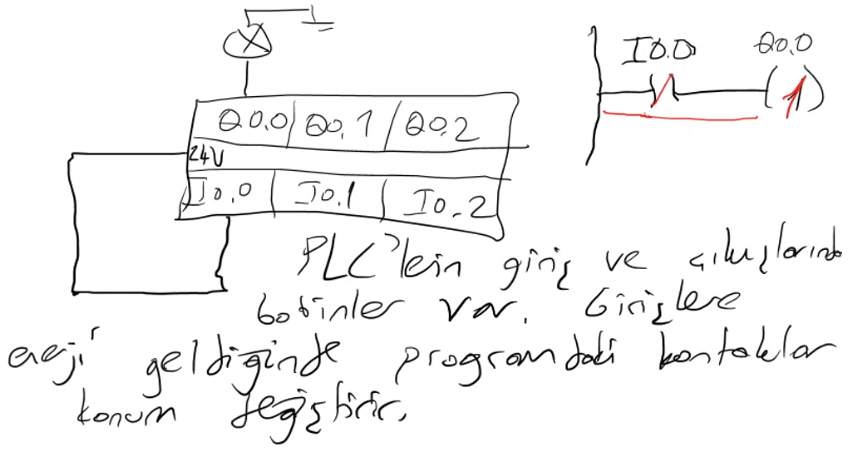 I0.0 Q0.0
Q0.0 Q0.1 Q0.2
24V
I0.0 I0.1 I0.2
PLC'lein giriş ve çıkışlarında
bobinler var. Girişlere
enerji geldiğinde programdaki kontaklar
konum değiştirir.